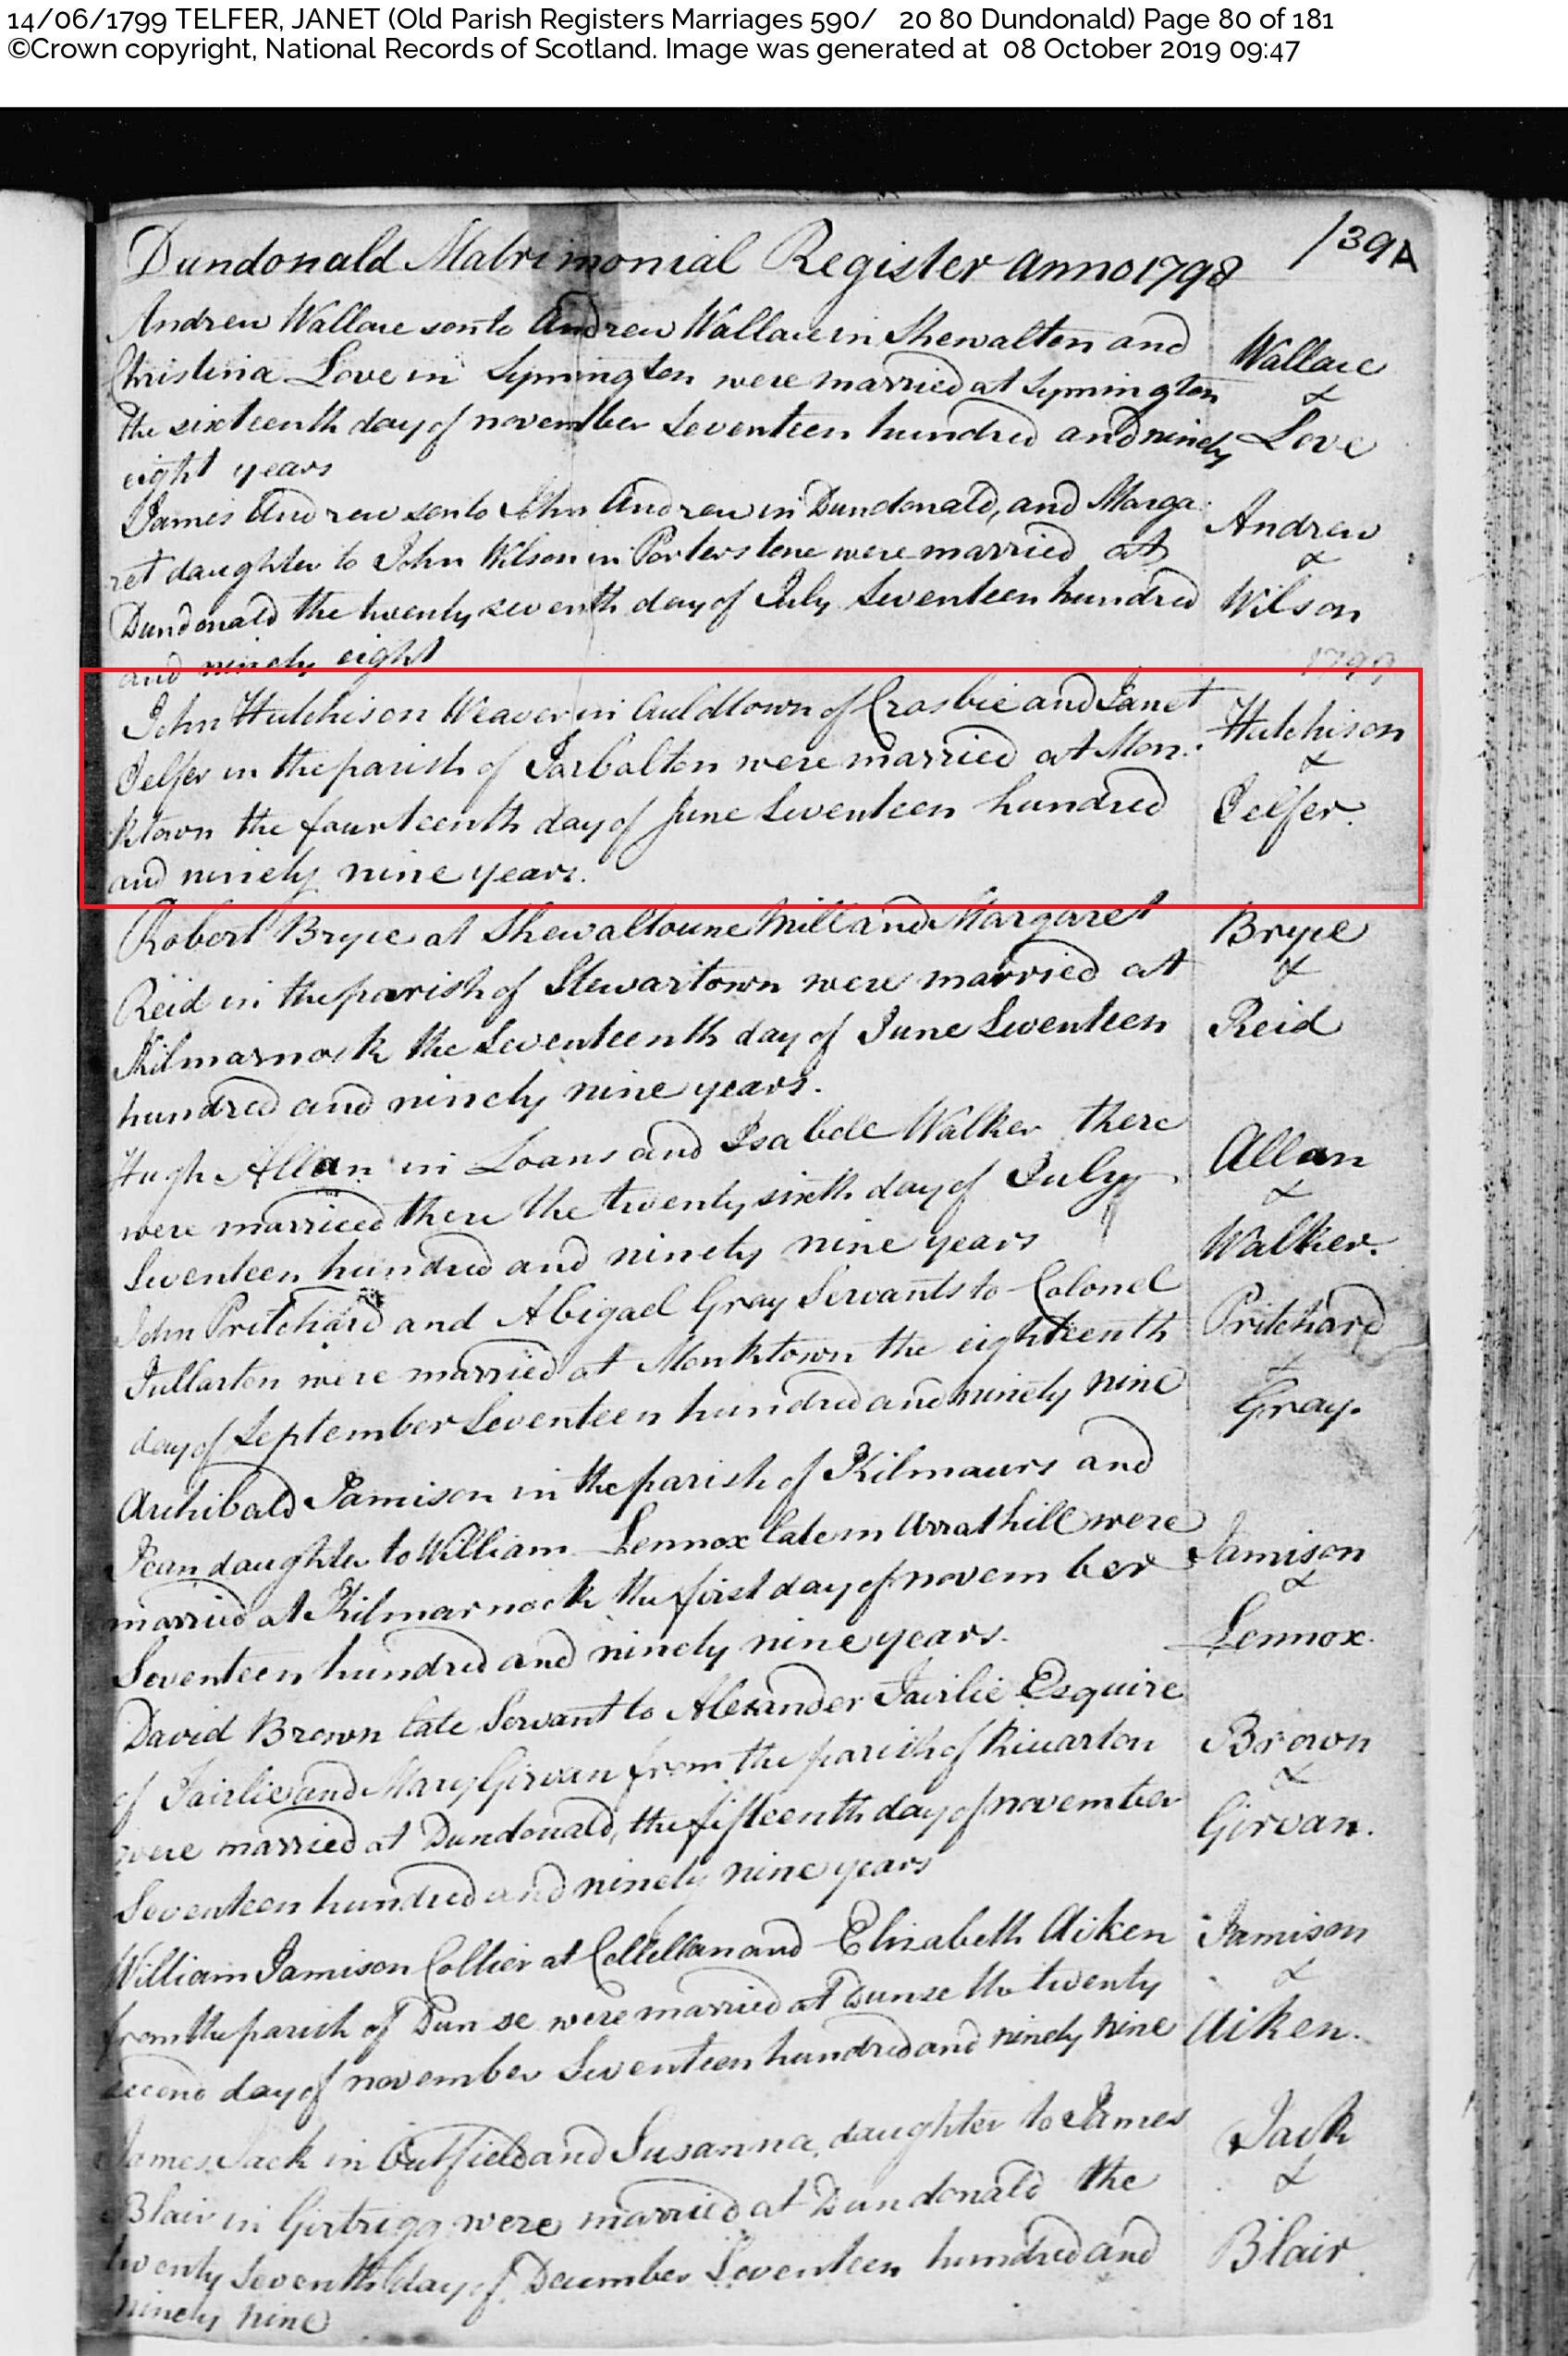 14/06/1799 TELFER, JANET (Old Parish Registers Marriages 590/ 20 80 Dundonald) Page 80 of 181
©Crown copyright, National Records of Scotland. Image was generated at 08 October 2019 09:47
Dundonald Matrimonial Register anno 1798 139A
Andrew Wallace son to Andrew Wallace in Shewalton and
Christina Love in Symington were married at Symington
the sixteenth day of november Seventeen hundred and ninety
eight years
Wallace
&
Love
James Andrew son to John Andrew in Dundonald, and Marga
ret daughter to John Wilson in Porterstone were married at
Dundonald the twenty seventh day of July Seventeen hundred
and ninety eight
Andrew
&
Wilson
1799
John Hutchison Weaver in Auldtown of Crosbie and Janet
Telfer in the parish of Tarbolton were married at Mon:
ktown the fourteenth day of June Seventeen hundred
and ninety nine years.
Hutchison
&
Telfer.
Robert Bryce at Shewaltoune Mill and Margaret
Reid in the parish of Stewartown were married at
Kilmarnock the Seventeenth day of June Seventeen
hundred and ninety nine years.
Bryce
&
Reid
Hugh Allan in Loans and Isabell Walker there
were marrieed there the twenty sixth day of July
Seventeen hundred and ninety nine years
Allan
&
Walker.
John Pritchard and Abigael Gray Servants to Colonel
Fullarton were married at Monktown the eighteenth
day of September Seventeen hundred and ninety nine
Pritchard
&
Gray.
Archibald Jamison in the parish of Kilmaurs and
Jean daughter to William Lennox late in Arrathill were
married at Kilmarnock the first day of november
Seventeen hundred and ninety nine years.
Jamison
&
Lennox.
David Brown late Servant to Alexander Fairlie Esquire
of Fairlie and Mary Girvan from the parish of Riccarton
were married at Dundonald, the fifteenth day of november
Seventeen hundred and ninety nine years
Brown
&
Girvan.
William Jamison Collier at and Elizabeth Aiken
from the parish of Dunse were married at Dunse the twenty
second day of november Seventeen hundred and ninety nine
Jamison
&
Aiken.
James Jack in Outfield and Susanna daughter to James
Blair in Girtrigg were married at Dundonald the
twenty Seventh day of December Seventeen hundred and
ninety nine
Jack
&
Blair